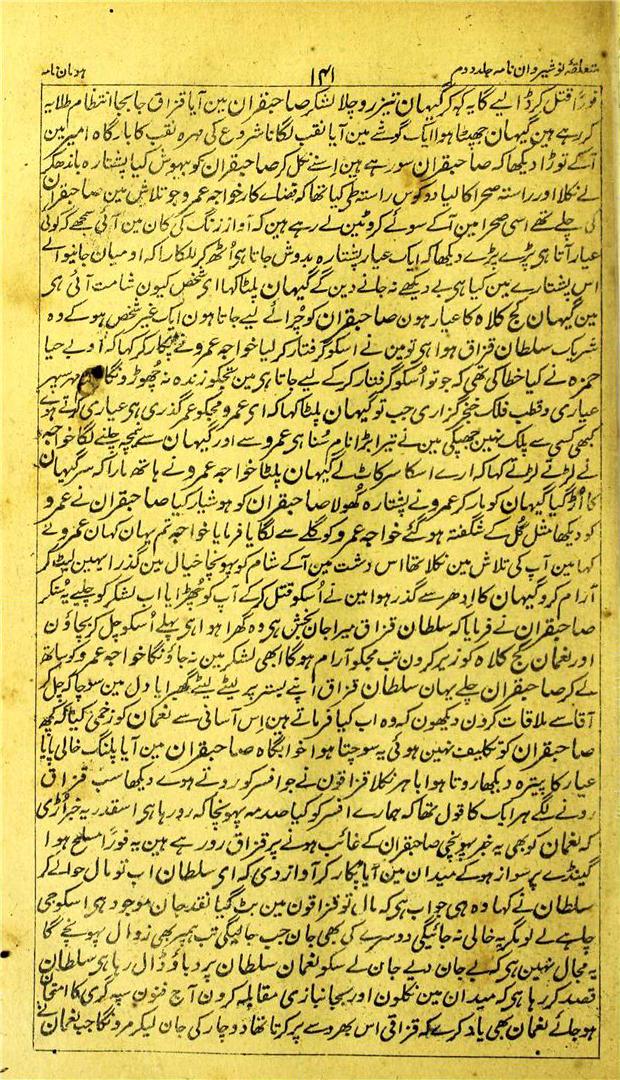 متعلقۂ نوشیروان نامہ جلد دوم
۱۴۱
ہومان نامہ
فوراً قتل کر ڈالیے گا یہ کہہ کر گیہان تیز رو چلا لشکر صاحبقران مین آیا قزاق جا بجا انتظام طلایہ
کر رہے ہین گیہان چھپتا ہوا ایک گوشے مین آیا نقب لگانا شروع کی مہرہ نقب کا بارگاہ امیر مین
آکے توڑا دیکھا کہ صاحبقران سو رہے ہین اسنے نکل کر صاحبقران کو بیہوش کیا پشتارہ باندھکر
لے نکلا اور راستہ صحرا کا لیا دو کوس راستہ طی کیا تھا کہ قضاے کار خواجہ عمرو جو تلاش مین صاحبقران
کی چلے تھے اسی صحرا مین آکے سوئے کروٹین لے رہے ہین کہ آواز زنگ کی کان مین آئی سمجھے کہ کوئی
عیار آتا ہی پڑے پڑے دیکھا کہ ایک عیار پشتارہ بدوش جاتا ہی اُٹھ کر للکارا کہ او میان جانیوالے
اس پشتارے مین کیا ہی بے دیکھے نہ جانے دین گے گیہان پلٹا کہا ای شخص کیون شامت آئی ہی
مین گیہان کج کلاہ کا عیار ہون صاحبقران کو چُرائے لیے جاتا ہون ایک غیر شخص ہو کے وہ
شریک سلطان قزاق ہوا ہی تو مین نے اسکو گرفتار کر لیا خواجہ عمرو نے پکار کر کہا کہ او بے حیا
حمزہ نے کیا خطا کی تھی کہ جو تو اُسکو گرفتار کر کے لیے جاتا ہی مین تجھکو زندہ نہ چھوڑونگا مہر سپہر
عیاری و قطب فلک خنجر گزاری جب تو گیہان پلٹا کہا کہ ای عمرو مجکو عمر گذری ہی عیاری کرتے ہوے
کبھی کسی سے پلک نہین جھپکی مین نے تیرا بڑا نام سُنا ہی عمرو سے اور گیہان سے نیمچہ چلنے لگا خواجہ
نے لڑتے لڑتے کہا کہ ارے اسکا سر کاٹ لے گیہان پلٹا خواجہ عمرو نے ہاتھ مارا کہ سر گیہان
کا اُڑ گیا گیہان کو مار کر عمرو نے پشتارہ کھولا صاحبقران کو ہوشیار کیا صاحبقران نے عمرو
کو دیکھا مثل گل کے شگفتہ ہو گئے خواجہ عمرو کو گلے سے لگایا فرمایا خواجہ تم یہان کہان عمرو نے
کہا مین آپ کی تلاش مین نکلا تھا اس دشت مین آکے شام کو پہونچا خیال مین گذرا یہین لیٹ کر
آرام کرو گیہان کا اِدھر سے گذر ہوا مین نے اُسکو قتل کر کے آپ کو چھڑایا اب لشکر کو چلیے یہ سُنکر
صاحبقران نے فرمایا کہ سلطان قزاق میرا جان بخش ہی وہ گھرا ہوا ہی پہلے اُسکو چل کر بچاؤن
اور نعمان کج کلاہ کو زیر کرون تب مجکو آرام ہوگا ابھی لشکر مین نہ جاؤنگا خواجہ عمرو کو ساتھ
لے کر صاحبقران چلے یہان سلطان قزاق اپنے بستر پر لیٹے لیٹے گھبرایا دل مین سوچا کہ چل کر
آقا سے ملاقات کرون دیکھون کہ وہ اب کیا فرماتے ہین اِس آسانی سے نعمان کو زخمی کیا کہ کچھ
صاحبقران کو تکلیف نہین ہوئی یہ سوچتا ہوا خوابگاہ صاحبقران مین آیا پلنگ خالی پایا
عیار کا پیترہ دیکھا روتا ہوا باہر نکلا قزاقون نے جو افسر کو روتے ہوے دیکھا سب قزاق
رونے لگے ہر ایک کا قول تھا کہ ہمارے افسر کو کیا صدمہ پہونچا کہ رو رہا ہی اسقدر یہ خبر اُڑی
کہ نعمان کو بھی یہ خبر پہونچی صاحبقران کے غائب ہونے پر قزاق رو رہے ہین یہ فوراً مسلح ہوا
گینڈے پر سوار ہو کے میدان مین آیا پکار کر آواز دی کہ ای سلطان اب تو مال حوالے کر
سلطان نے کہا وہ ہی جواب ہی کہ مال تو قزاقون مین بٹ گیا نقد جان موجود ہی اسکو جی
چاہے لے لو مگر یہ خالی نہ جائیگی دوسرے کی بھی جان جب جائیگی تب ہمپر بھی زوال پہونچے گا
یہ مجال نہین ہی کہ بے جان دیے جان لے سکو نعمان سلطان پر دباؤ ڈال رہا ہی سلطان
قصد کر رہا ہی کہ میدان مین نکلون اور بجانبازی مقابلہ کرون آج فنون سپہ گری کا امتحان
ہو جائے نعمان بھی یاد کرے کہ قزاقی اس بھروسے پر کرتا تھا دو چار کی جان لیکر مرونگا جب نعمان نے